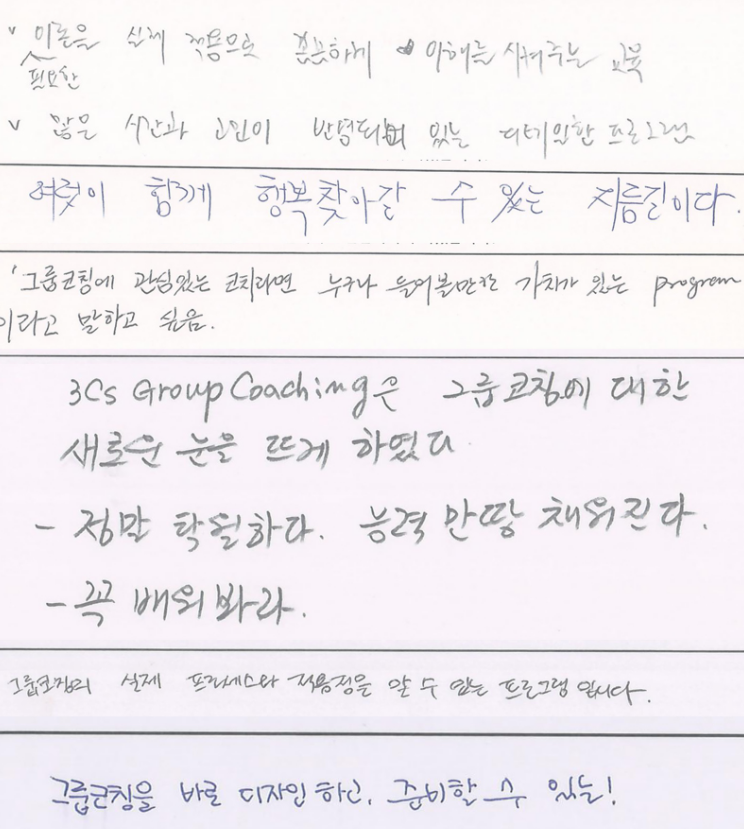 ∨ 이론을 실제 적용으로 충분하게 이해를 시켜주는 교육
필요한
∨ 많은 시간과 고민이 반영되어 있는 디자인한 프로그램
여럿이 함께 행복찾아갈 수 있는 지름길이다.
'그룹코칭에 관심있는 코치라면 누구나 들어볼만한 가치가 있는 program
이라고 말하고 싶음.
3Cs Group Coaching은 그룹코칭에 대한
새로운 눈을 뜨게 하였다
- 정말 탁월하다. 능력 만땅 채워진다.
- 꼭 배워 봐라.
그룹코칭의 실제 프로세스와 적용점을 알 수 있는 프로그램 입니다.
그룹코칭을 바로 디자인 하고, 준비할 수 있는!